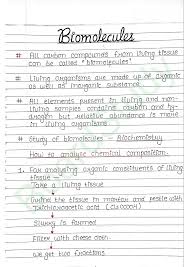 Biomolecules
# All carbon compounds from living tissue
can be called "biomolecules"
# Living organisms are made up of organic
as well as inorganic substance
# All elements present in living and non-
living samples contains carbon and hy-
drogen but relative abundance is more
in living organisms.
# Study of biomolecules - Biochemistry
How to analyse chemical composition
1. For analysing organic constituents of living
tissue -
Take a living tissue
↓
Grind the tissue in mortar and pestle with
trichloroacetic acid (Cl₃CCOOH)
↓
Slurry is formed
↓
Filter with cheese cloth
↓
we get two fractions